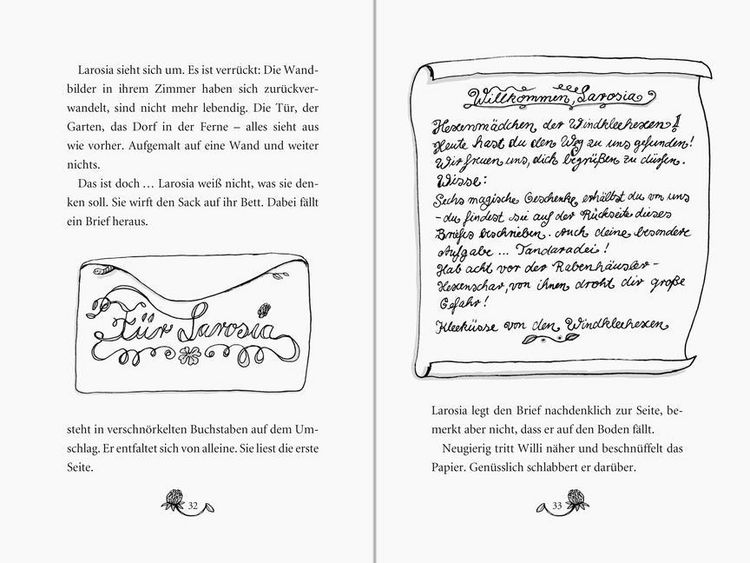 Larosia sieht sich um. Es ist verrückt: Die Wand-
bilder in ihrem Zimmer haben sich zurückver-
wandelt, sind nicht mehr lebendig. Die Tür, der
Garten, das Dorf in der Ferne – alles sieht aus
wie vorher. Aufgemalt auf eine Wand und weiter
nichts.
Das ist doch … Larosia weiß nicht, was sie den-
ken soll. Sie wirft den Sack auf ihr Bett. Dabei fällt
ein Brief heraus.
Für Larosia
steht in verschnörkelten Buchstaben auf dem Um-
schlag. Er entfaltet sich von alleine. Sie liest die erste
Seite.
32
Willkommen, Larosia
Hexenmädchen der Windkleehexen!
Heute hast du den Weg zu uns gefunden!
Wir freuen uns, dich begrüßen zu dürfen.
Wisse:
Sechs magische Geschenke erhältst du von uns
– du findest sie auf der Rückseite dieses
Briefes beschrieben. Auch deine besondere
Aufgabe ... Tandaradei!
Hab acht vor der Rabenhäusler-
Hexenschar, von ihnen droht dir große
Gefahr!
Kleeküsse von den Windkleehexen
Larosia legt den Brief nachdenklich zur Seite, be-
merkt aber nicht, dass er auf den Boden fällt.
Neugierig tritt Willi näher und beschnüffelt das
Papier. Genüsslich schlabbert er darüber.
33